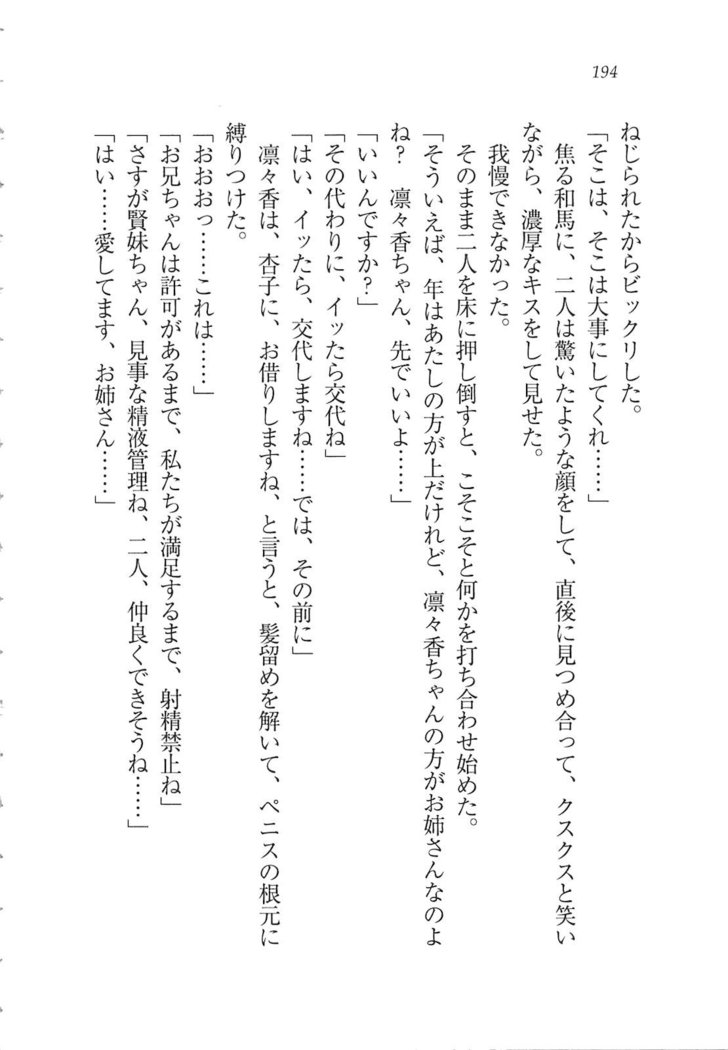 194
ねじられたからビックリした。
「そこは、そこは大事にしてくれ……」
焦る和馬に、二人は驚いたような顔をして、直後に見つめ合って、クスクスと笑い
ながら、濃厚なキスをして見せた。
我慢できなかった。
そのまま二人を床に押し倒すと、こそこそと何かを打ち合わせ始めた。
「そういえば、年はあたしの方が上だけれど、凛々香ちゃんの方がお姉さんなのよ
ね？　凛々香ちゃん、先でいいよ……」
「いいんですか？」
「その代わりに、イッたら交代ね」
「はい、イッたら、交代しますね……では、その前に」
凛々香は、杏子に、お借りしますね、と言うと、髪留めを解いて、ペニスの根元に
縛りつけた。
「おおおっ……これは……」
「お兄ちゃんは許可があるまで、私たちが満足するまで、射精禁止ね」
「さすが賢妹ちゃん、見事な精液管理ね、二人、仲良くできそうね……」
「はい……愛してます、お姉さん……」